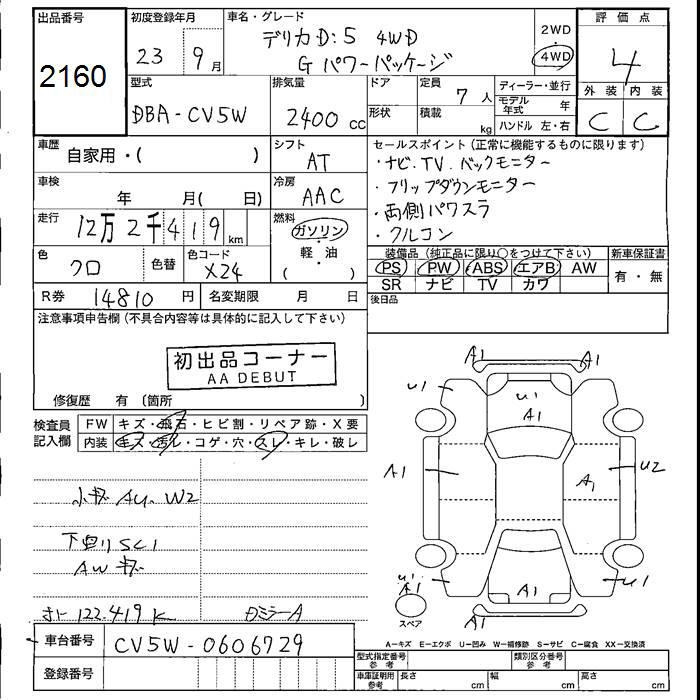 出品番号
2160
初度登録年月
23 9月
車名・グレード
デリカD:5 4WD
G パワーパッケージ
2WD
・
4WD
評価点
4
外装 内装
C C
型式
DBA-CV5W
排気量
2400 cc
ドア
形状
定員
7人
積載
kg
ディーラー・並行
モデル年式 年
ハンドル 左・右
車歴
自家用・( )
シフト
AT
車検
年 月( 日)
冷房
AAC
走行
12万2千419 km
燃料
ガソリン・
軽・油
( )
色
クロ
色替
色コード
X24
R券 14810 円
名変期限 月 日
セールスポイント(正常に機能するものに限ります)
・ナビ.TV.バックモニター
・フリップダウンモニター
・両側パワスラ
・クルコン
装備品(純正品に限り○をつけて下さい)
PS PW ABS エアB AW
SR ナビ TV カワ
新車保証書
有・無
後日品
注意事項申告欄(不具合内容等は具体的に記入して下さい)
初出品コーナー
AA DEBUT
修復歴 有(箇所 )
検査員
記入欄
FW キズ・飛石・ヒビ割・リペア跡・X要
内装 キズ・汚レ・コゲ・穴・スレ・キレ・破レ
小キズ AU.W2
下回りSC1
AWキズ
122.419K
ミラーA
A1 A1
U1 U1 A1
A1 A1 U2
U1 A1 A1 U1
A1
スペア
A－キズ E－エクボ U－凹み W－補修跡 S－サビ C－腐食 XX－交換済
車台番号 CV5W-0606729
登録番号
型式指定番号 参考
類別区分番号 参考
車庫証明用 参考 長さ cm 幅 cm 高さ cm